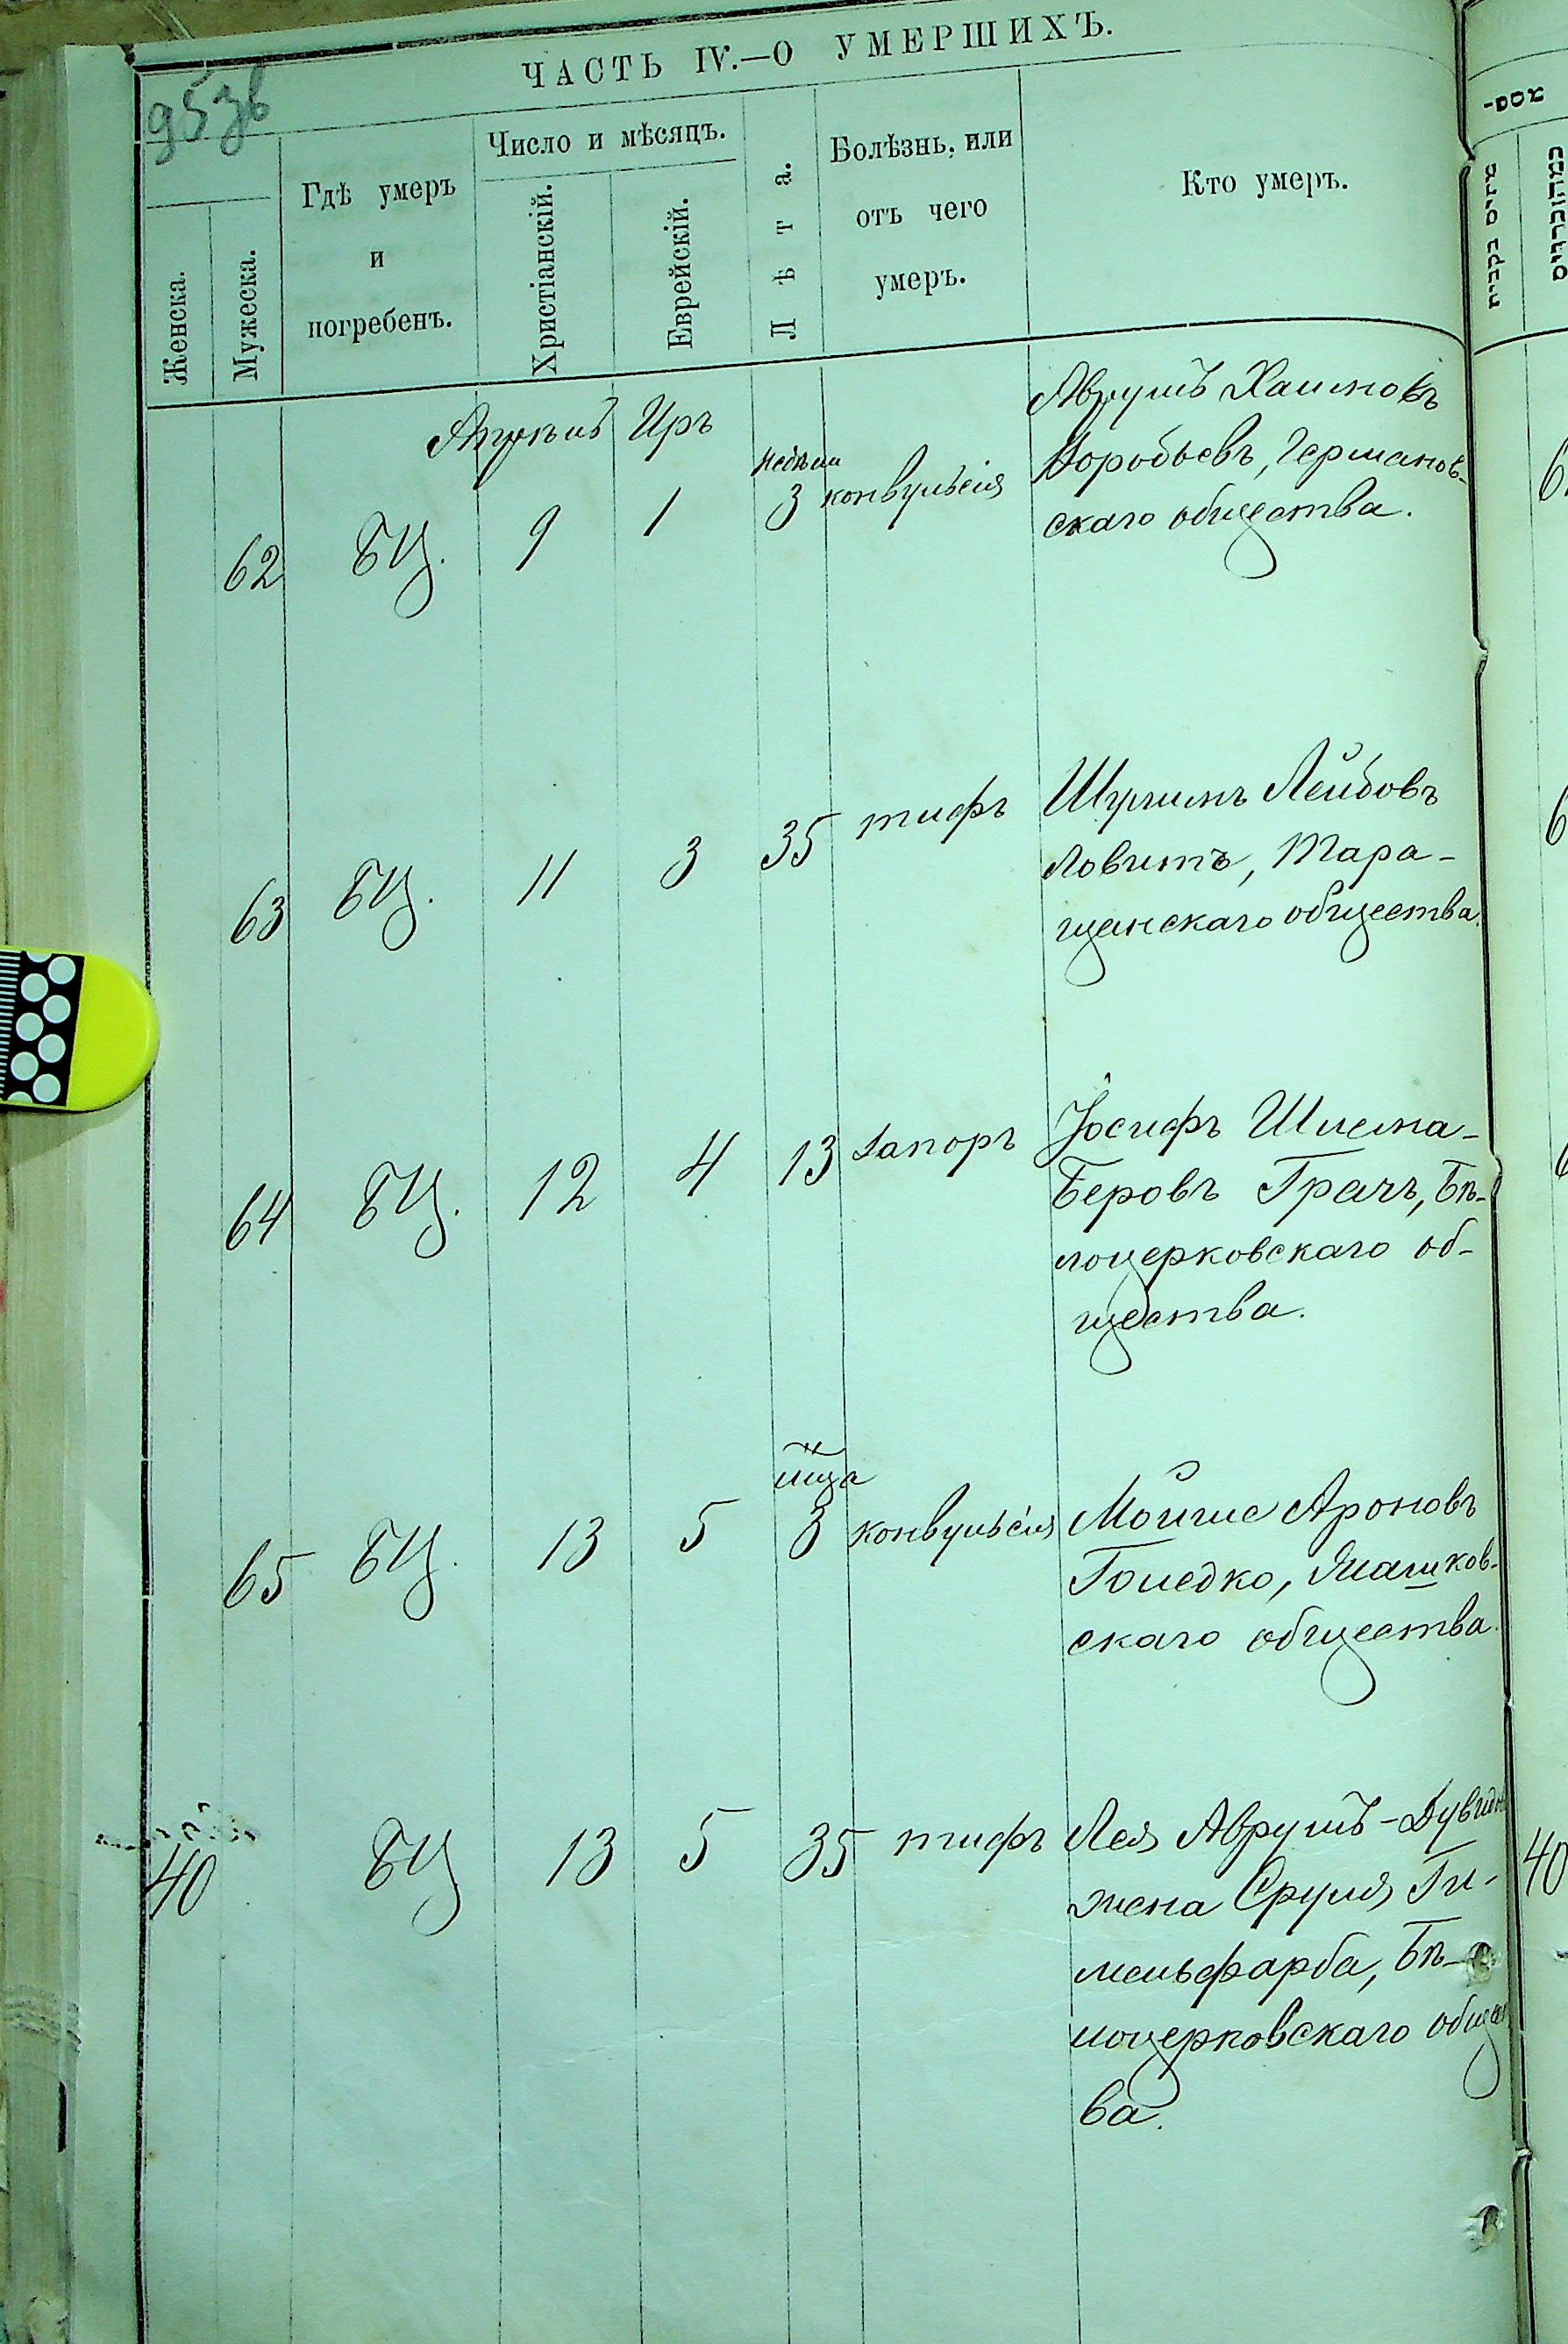 ЧАСТЬ IV.—О УМЕРШИХЪ.
95зв
Женска.
Мужеска.
Гдѣ умеръ
и
погребенъ.
Число и мѣсяцъ.
Христіанскій.
Еврейскій.
Лѣта.
Болѣзнь, или
отъ чего
умеръ.
Кто умеръ.
Апрѣль Иръ
62 БЦ. 9 1 недѣли 3 конвульсія
Аврумъ Хаимовъ
Воробьевъ, Германов-
скаго общества.
63 БЦ. 11 3 35 тифъ
Шулимъ Лейбовъ
Ловитъ, Тара-
щанскаго общества.
64 БЦ. 12 4 13 запоръ
Іосифъ Шлема-
Беровъ Грачъ, Бѣ-
лоцерковскаго об-
щества.
65 БЦ. 13 5 мца 3 конвульсія
Мойше Ароновъ
Голедко, Яшков-
скаго общества.
40 БЦ 13 5 35 тифъ
Лея Аврумъ-Дувидов
жена Сруля Ги-
мельфарба, Бѣ-
лоцерковскаго общест
ва.
40